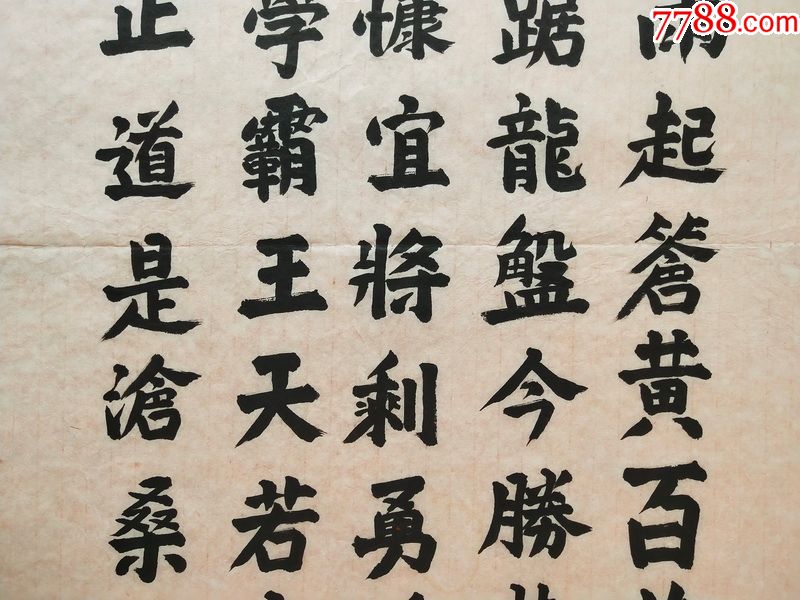 7788.com
雨起蒼黄百
踞龍盤今勝
慷宜將剩勇
学霸王天若
正道是滄桑